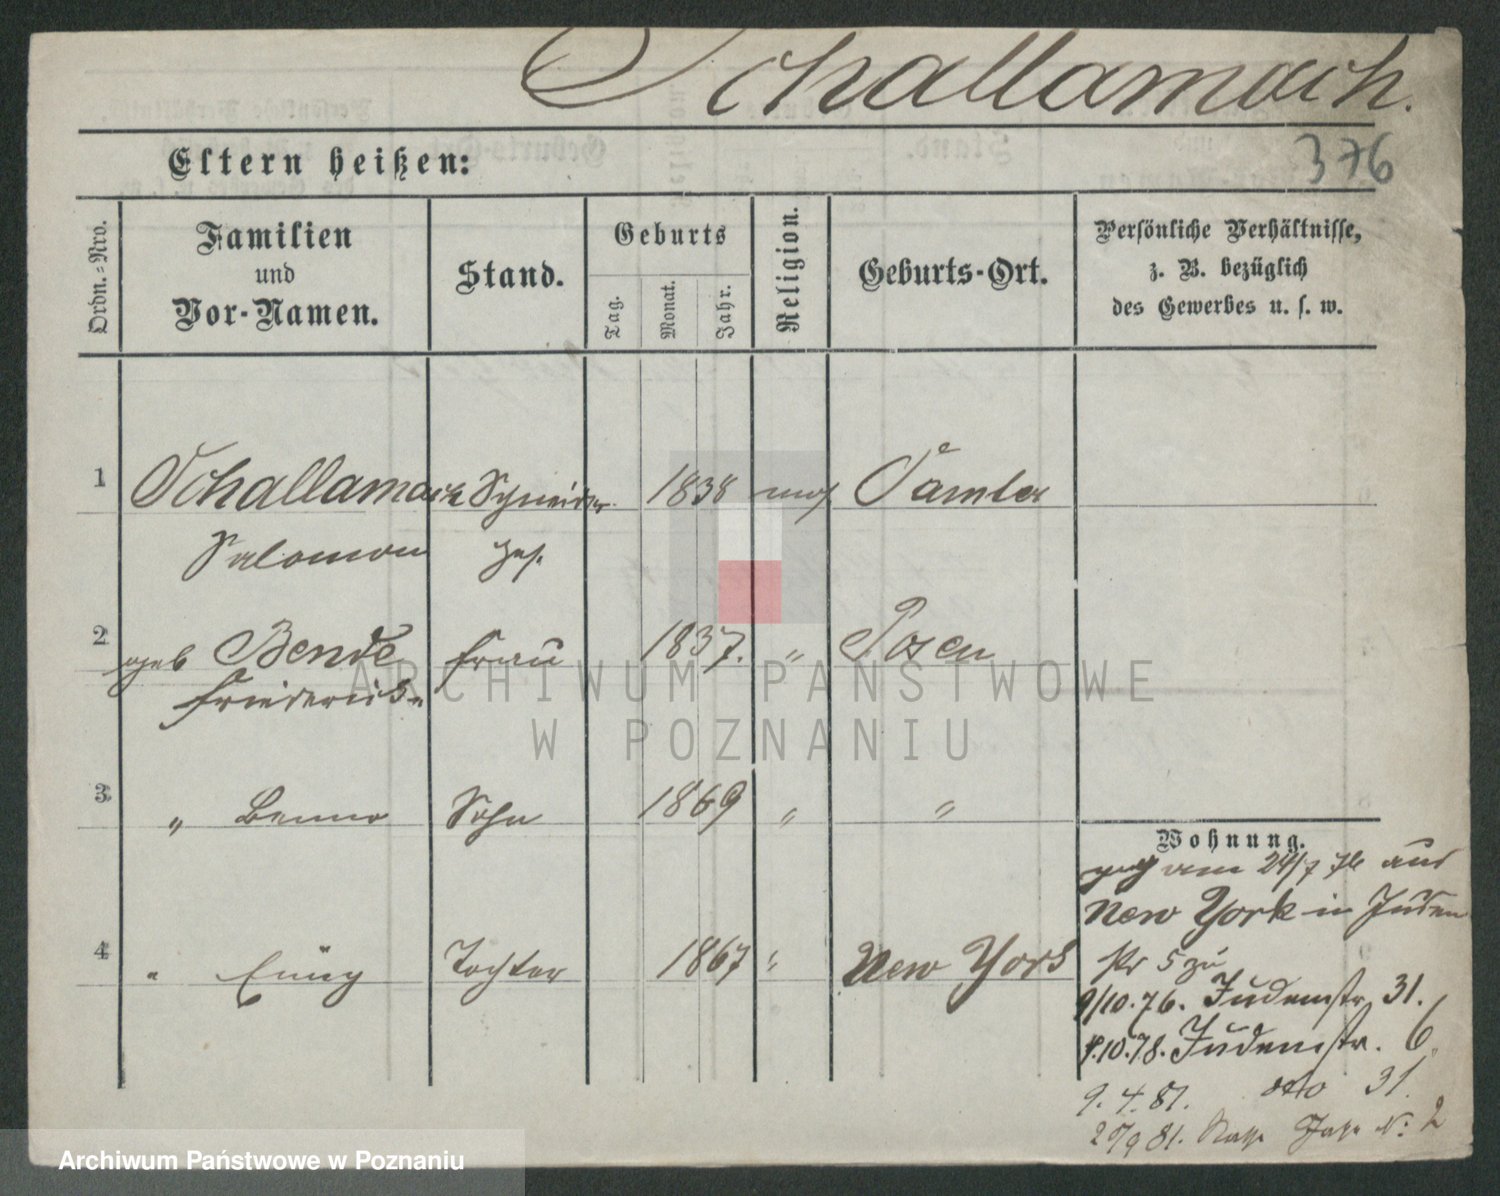 Schallamach.
376
Eltern heißen:
Ordn.=Nro.
Familien
und
Vor-Namen.
Stand.
Geburts
Tag.
Monat.
Jahr.
Religion.
Geburts-Ort.
Persönliche Verhältnisse,
z. B. bezüglich
des Gewerbes u. s. w.
1 Schallamach Schneider 1838 mos
Salomon Ges.
2 geb Bende Frau 1837. " Posen
Friederike
3 " Benno Sohn 1869 " "
4 " Tochter 1867 " New York
Wohnung.
am 24/7 76 aus
New York in Juden
str 5 zu
9/10.76. Judenstr 31.
10.78. Judenstr. 6.
9.4.81. dto 31.
81. N: 2
ARCHIWUM PAŃSTWOWE
W POZNANIU
Archiwum Państwowe w Poznaniu